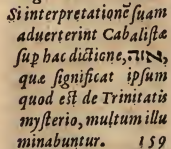 Si interpretationẽ suam
aduerterint Cabalistæ
sup hac dictiõne, אזה,
quæ significat ipsum
quod est de Trinitatis
mysterio, multum illu
minabuntur. 159